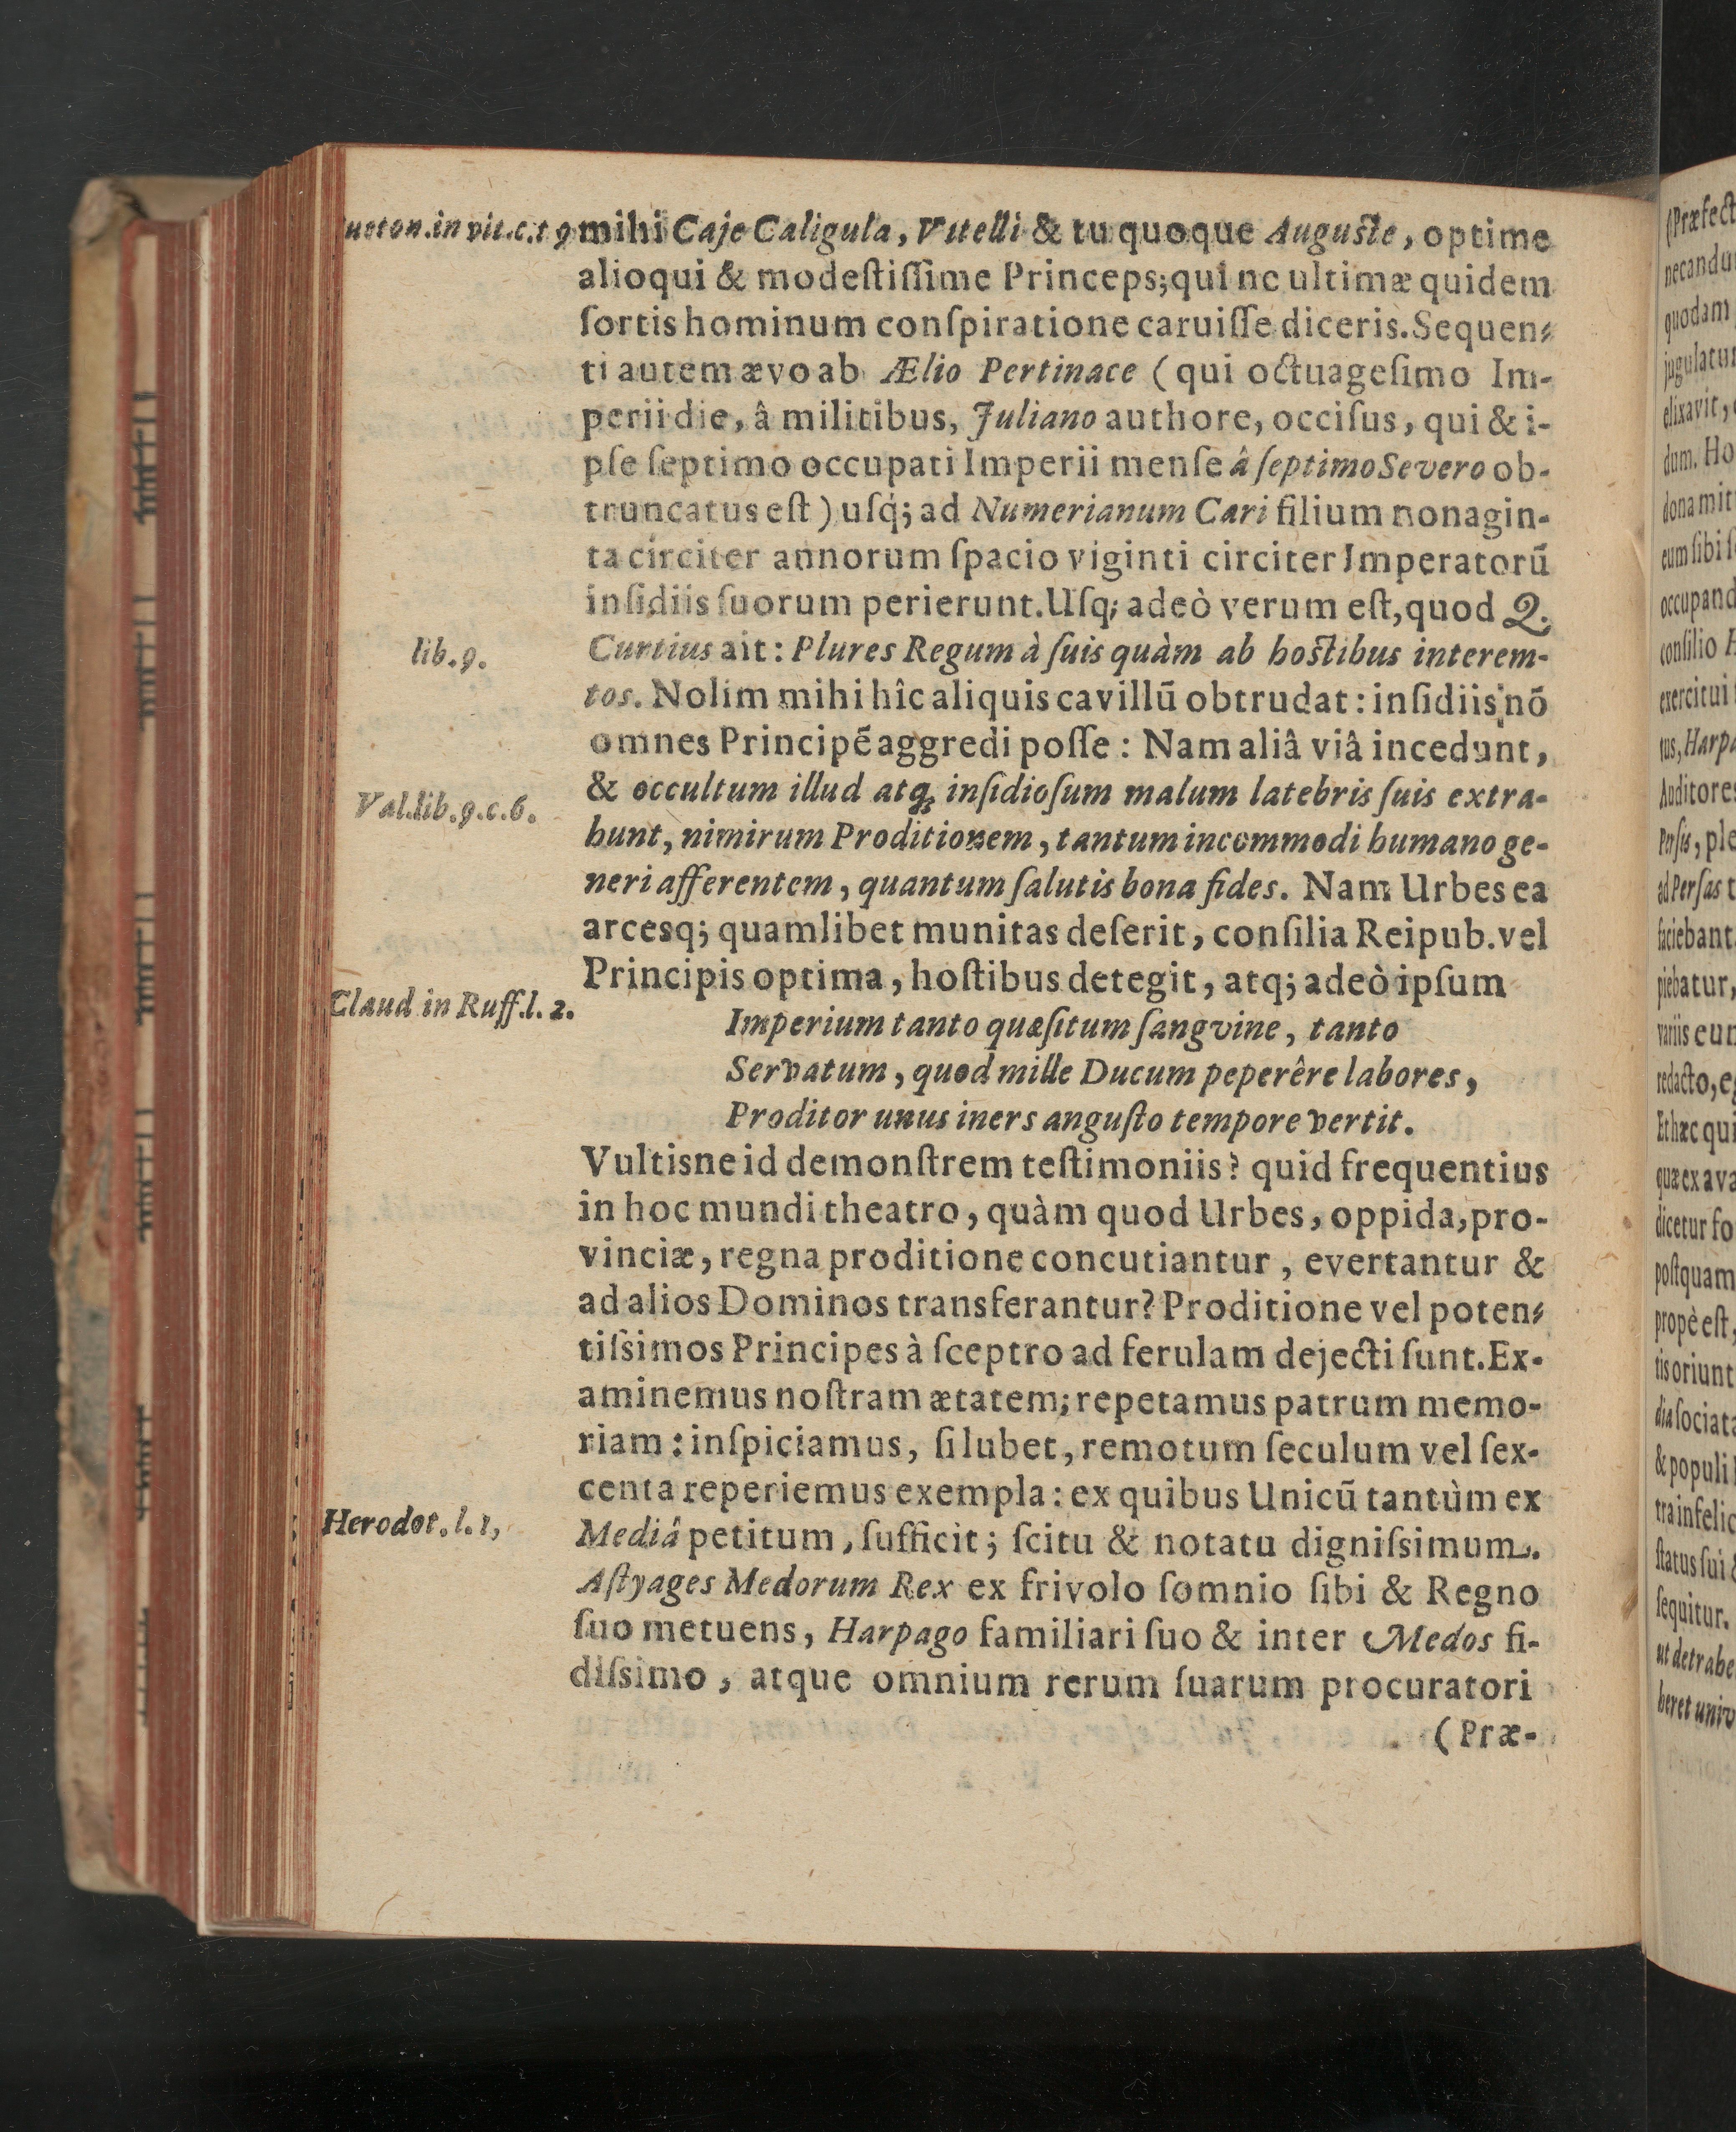 ueton.in vit.c.19
mihi Caje Caligula, Vitelli & tu quoque Auguste, optime
alioqui & modestissime Princeps; qui ne ultimæ quidem
sortis hominum conspiratione caruisse diceris. Sequen-
ti autem ævo ab Ælio Pertinace (qui octuagesimo Im-
perii die, â militibus, Juliano authore, occisus, qui & i-
pse septimo occupati Imperii mense â septimo Severo ob-
truncatus est) usq́; ad Numerianum Cari filium nonagin-
ta circiter annorum spacio viginti circiter Imperatorũ
insidiis suorum perierunt. Usq; adeò verum est, quod Q.
lib. 9.
Curtius ait: Plures Regum à suis quàm ab hostibus interem-
tos. Nolim mihi hîc aliquis cavillũ obtrudat: insidiis nõ
omnes Principẽ aggredi posse: Nam aliâ viâ incedunt,
Val. lib. 9. c. 6.
& occultum illud atq; insidiosum malum latebris suis extra-
hunt, nimirum Proditionem, tantum incommodi humano ge-
neri afferentem, quantum salutis bona fides. Nam Urbes ea
arcesq; quamlibet munitas deserit, consilia Reipub. vel
Principis optima, hostibus detegit, atq; adeò ipsum
Claud in Ruff. l. 2.
Imperium tanto quæsitum sangvine, tanto
Servatum, quod mille Ducum peperêre labores,
Proditor unus iners angusto tempore vertit.
Vultisne id demonstrem testimoniis? quid frequentius
in hoc mundi theatro, quàm quod Urbes, oppida, pro-
vinciæ, regna proditione concutiantur, evertantur &
ad alios Dominos transferantur? Proditione vel poten-
tissimos Principes à sceptro ad ferulam dejecti sunt. Ex-
aminemus nostram ætatem; repetamus patrum memo-
riam: inspiciamus, si lubet, remotum seculum vel sex-
centa reperiemus exempla: ex quibus Unicũ tantùm ex
Herodot. l. 1,
Mediâ petitum, sufficit; scitu & notatu dignissimum.
Astyages Medorum Rex ex frivolo somnio sibi & Regno
suo metuens, Harpago familiari suo & inter Medos fi-
dissimo, atque omnium rerum suarum procuratori
(Præ-
(Præfect
necandu
quodam
jugulatur
elixavit,
dum. Ho
dona mit
eum sibi
occupand
consilio H
exercitui
tus, Harpa
Auditores
Persis, ple
ad Persas t
faciebant
piebatur,
variis eun
redacto, e
Et hæc qui
quæ ex ava
dicetur fo
postquam
propè est,
tis oriunt
dia sociata
& populi
tra infelic
status sui
sequitur.
ut detrahe
beret univ